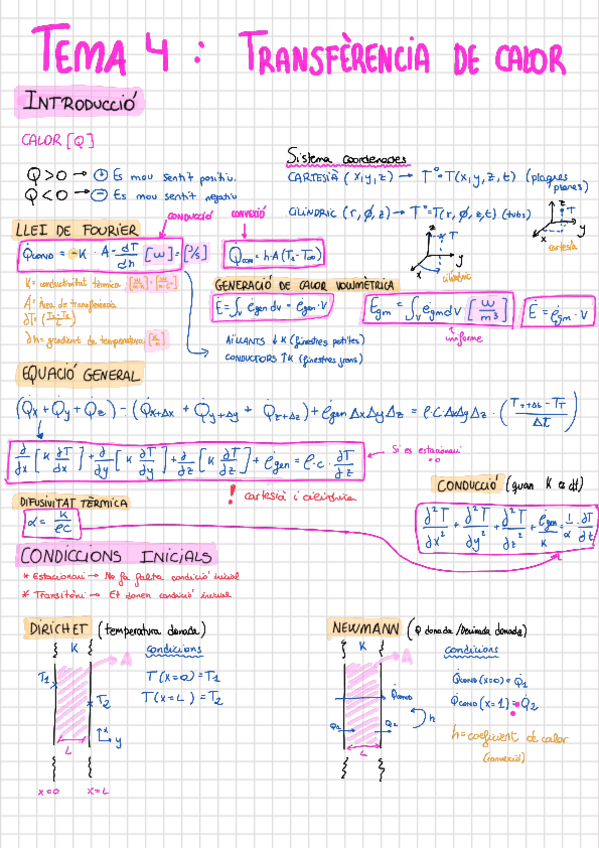 TEMA 4 : TRANSFÈRENCIA DE CALOR
INTRODUCCIÓ
CALOR [Q]
Q>0 → ⊕ Es mou sentit positiu.
Q<0 → ⊖ Es mou sentit negatiu
Sistema coordenades
CARTESIÀ (x,y,z) → T°=T(x,y,z,t) (plaques planes)
CILÍNDRIC (r,ø,z) → T°=T(r,ø,z,t) (tubs)
cartesià
cilíndric
LLEI DE FOURIER
CONDUCCIÓ
CONVECCIÓ
Q̇cond = -K · A · dT/dh [W]=[J/s]
Q̇conv = h·A(Ts-T∞)
K= conductivitat tèrmica
A= Àrea de transferència
dh= gradient de temperatura
GENERACIÓ DE CALOR VOLUMÈTRICA
Ė=∫v ėgen dv = ėgen·V
Ėgen = ∫v ėgen dv [W/m³]
Ė = ėgen · V
uniforme
AÏLLANTS ↓K (finestres petites)
CONDUCTORS ↑K (finestres grans)
EQUACIÓ GENERAL
(Q̇x + Q̇y + Q̇z) - (Q̇x+Δx + Q̇y+Δy + Q̇z+Δz) + ėgen ΔxΔyΔz = ρ·C·ΔxΔyΔz · (TT+Δt - TT / Δt)
∂/∂x [K ∂T/∂x] + ∂/∂y [K ∂T/∂y] + ∂/∂z [K ∂T/∂z] + ėgen = ρ·c·
Si es estacionari = 0
! cartesià i cilíndric
DIFUSIVITAT TÈRMICA
α = K/ρC
CONDUCCIÓ (quan K és ct)
∂²T/∂x² + ∂²T/∂y² + ∂²T/∂z² + ėgen/K = 1/α · ∂T/∂t
CONDICCIONS INICIALS
* Estacionari → No fa falta condició inicial
* Transitòri → Et donen condició inicial
DIRICHET (temperatura donada)
K
A
condicions
T(x=0)=T1
T(x=L)=T2
T1
T2
x
y
L
x=0
x=L
NEWMANN (Q donada/Derivada donada)
K
A
condicions
Q̇cond(x=0)=Q̇1
Q̇cond(x=1)=Q̇2
Q̇cond
Q2
h
L
h= coeficient de calor
(convecció)